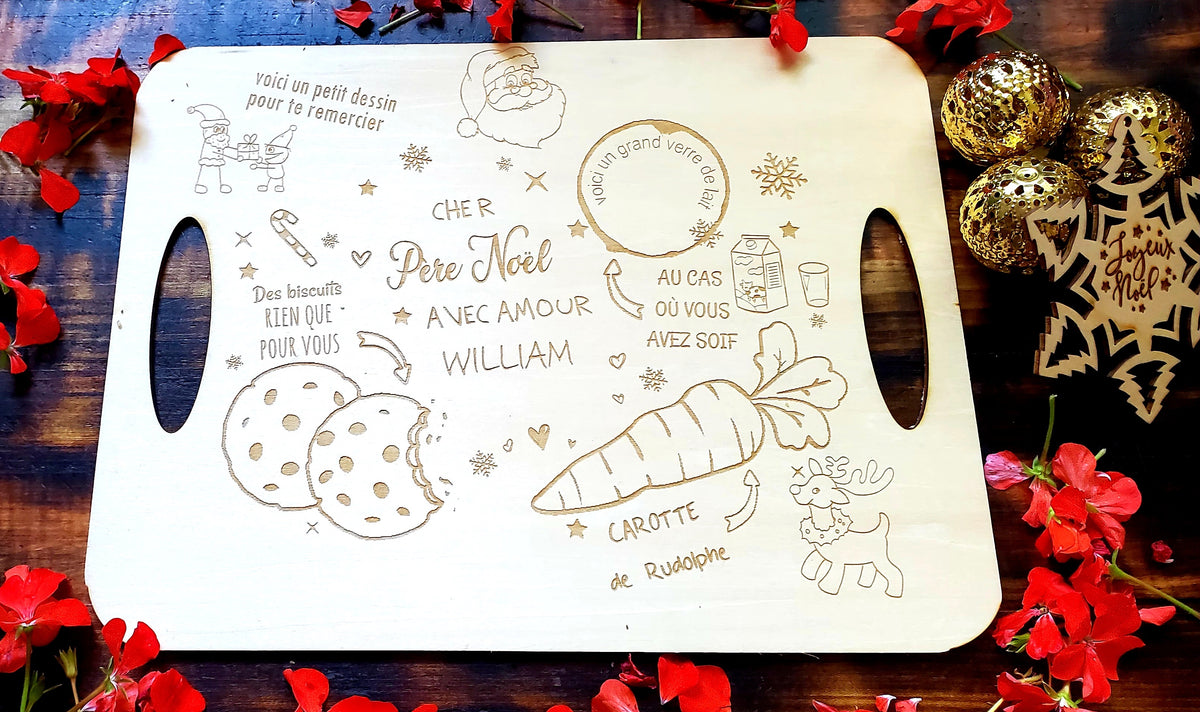 voici un petit dessin
pour te remercier
voici un grand verre de lait
CHER
Père Noël
AVEC AMOUR
WILLIAM
Des biscuits
RIEN QUE
POUR VOUS
AU CAS
OÙ VOUS
AVEZ SOIF
CAROTTE
de Rudolphe
Joyeux
Noël